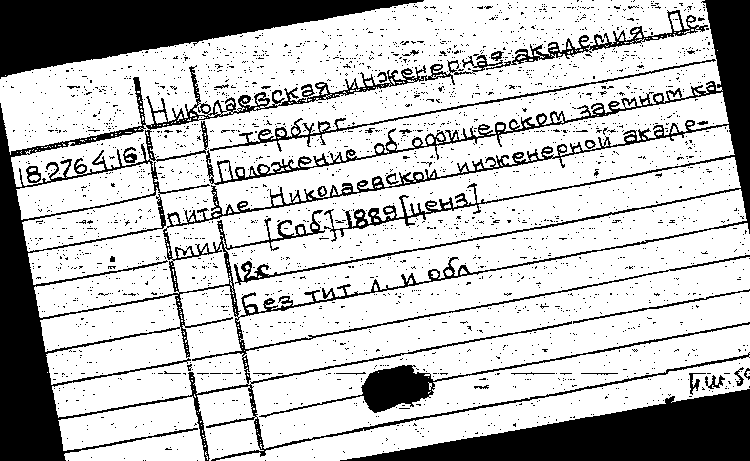 Николаевская инженерная академия. Пе-
тербург.
18.276.4.161
Положение об офицерском заемном ка-
питале Николаевской инженерной акаде-
мии. [Спб], 1889 [ценз].
12с.
Без тит. л. и обл.